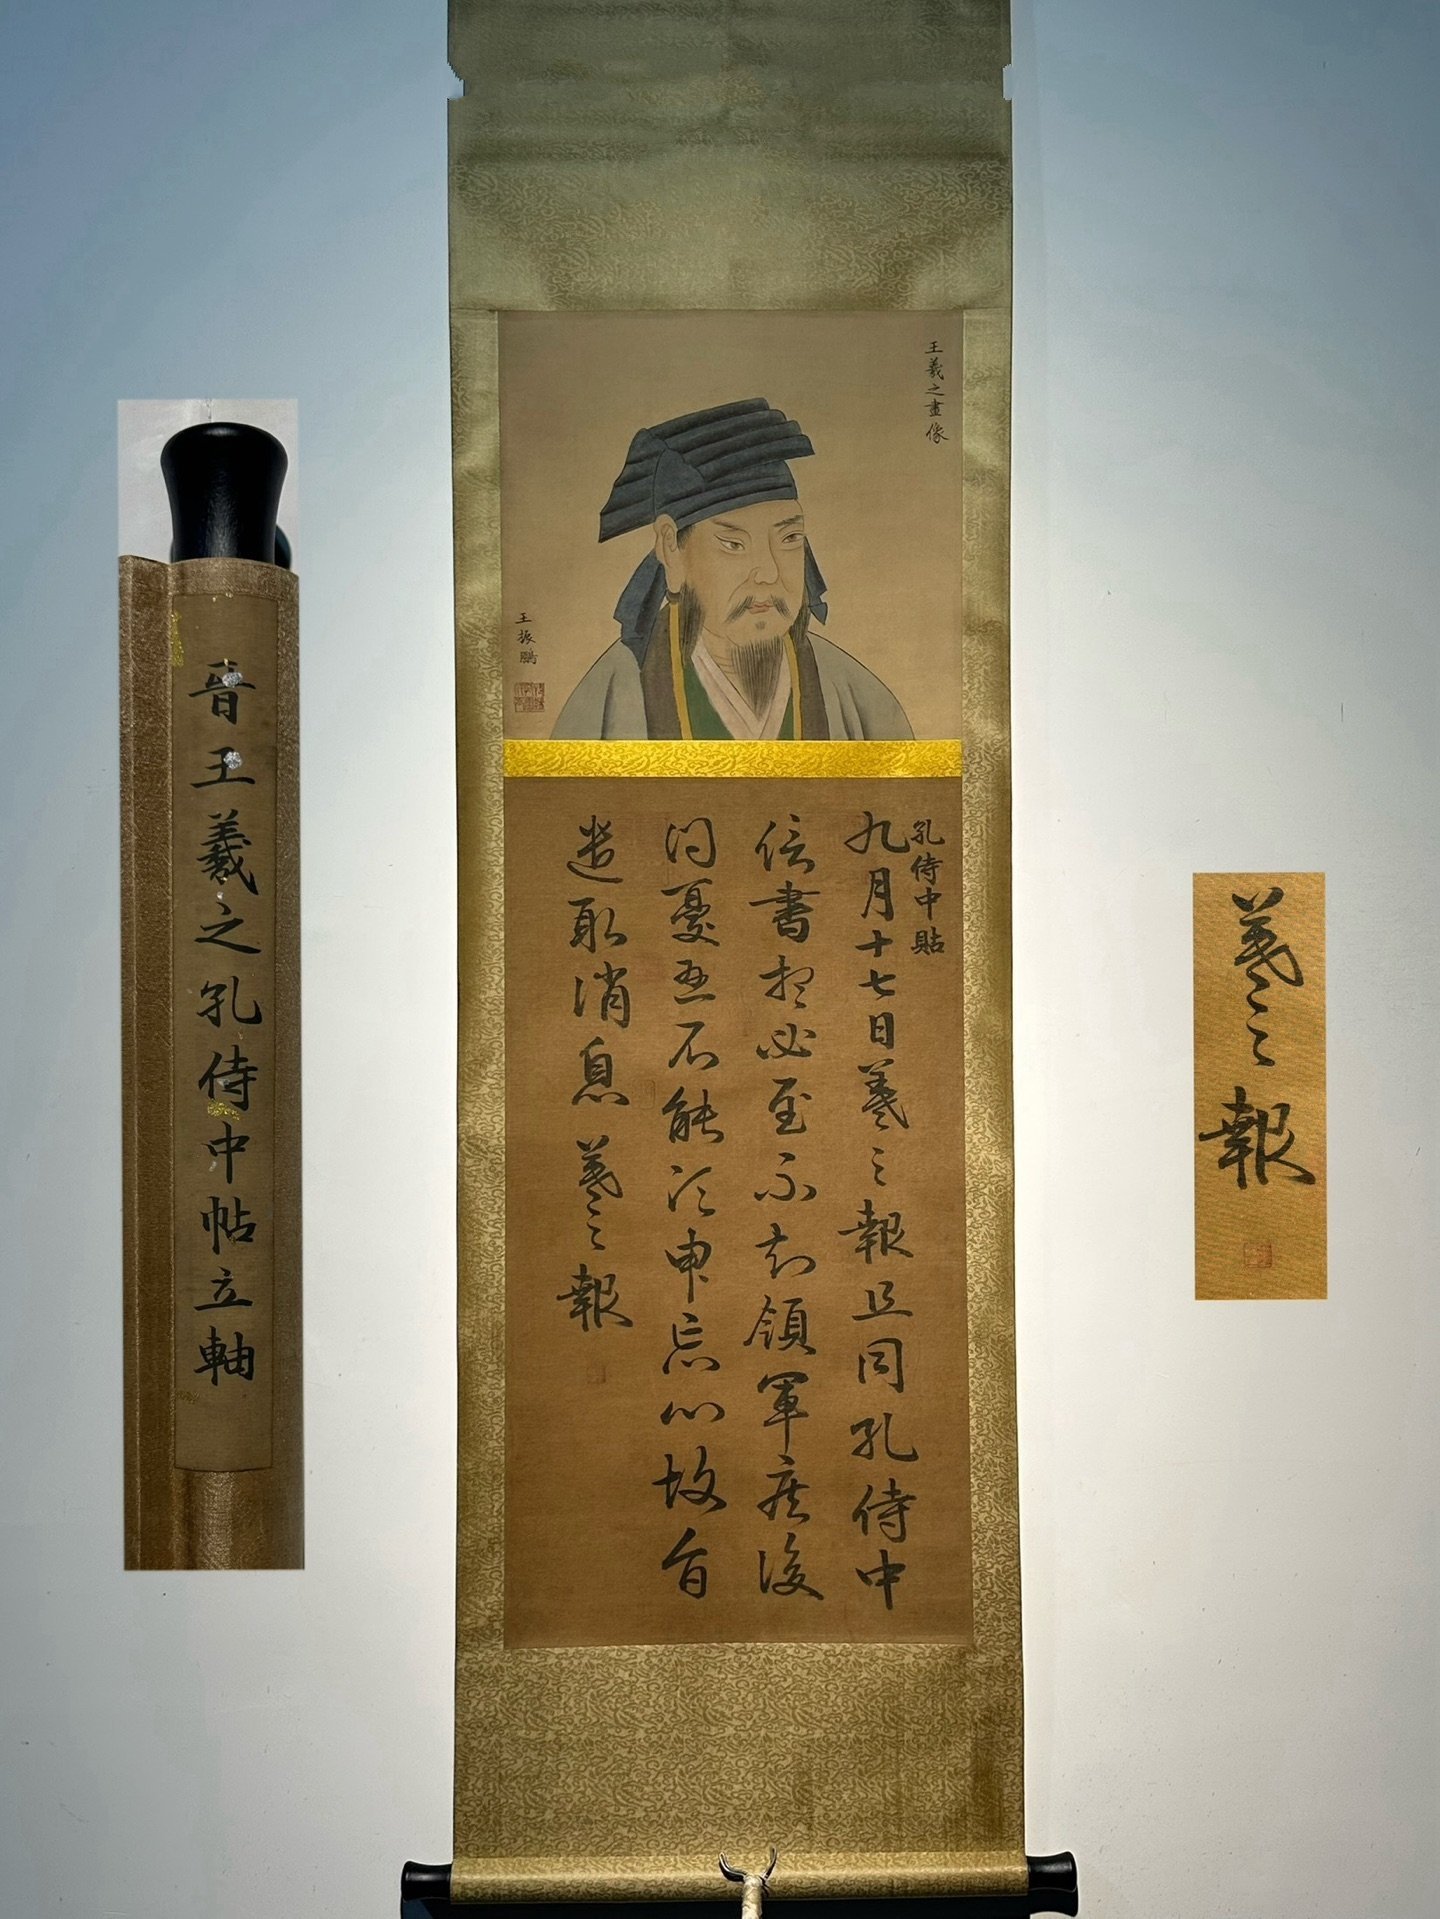 王羲之畫像
王振鵬
孔侍中貼
九月十七日羲之報且因孔侍中
信書想必至不知領軍疾後
问憂懸不能須申忘心故旨
遣取消息羲之報
晉王羲之孔侍中帖立軸
羲之報